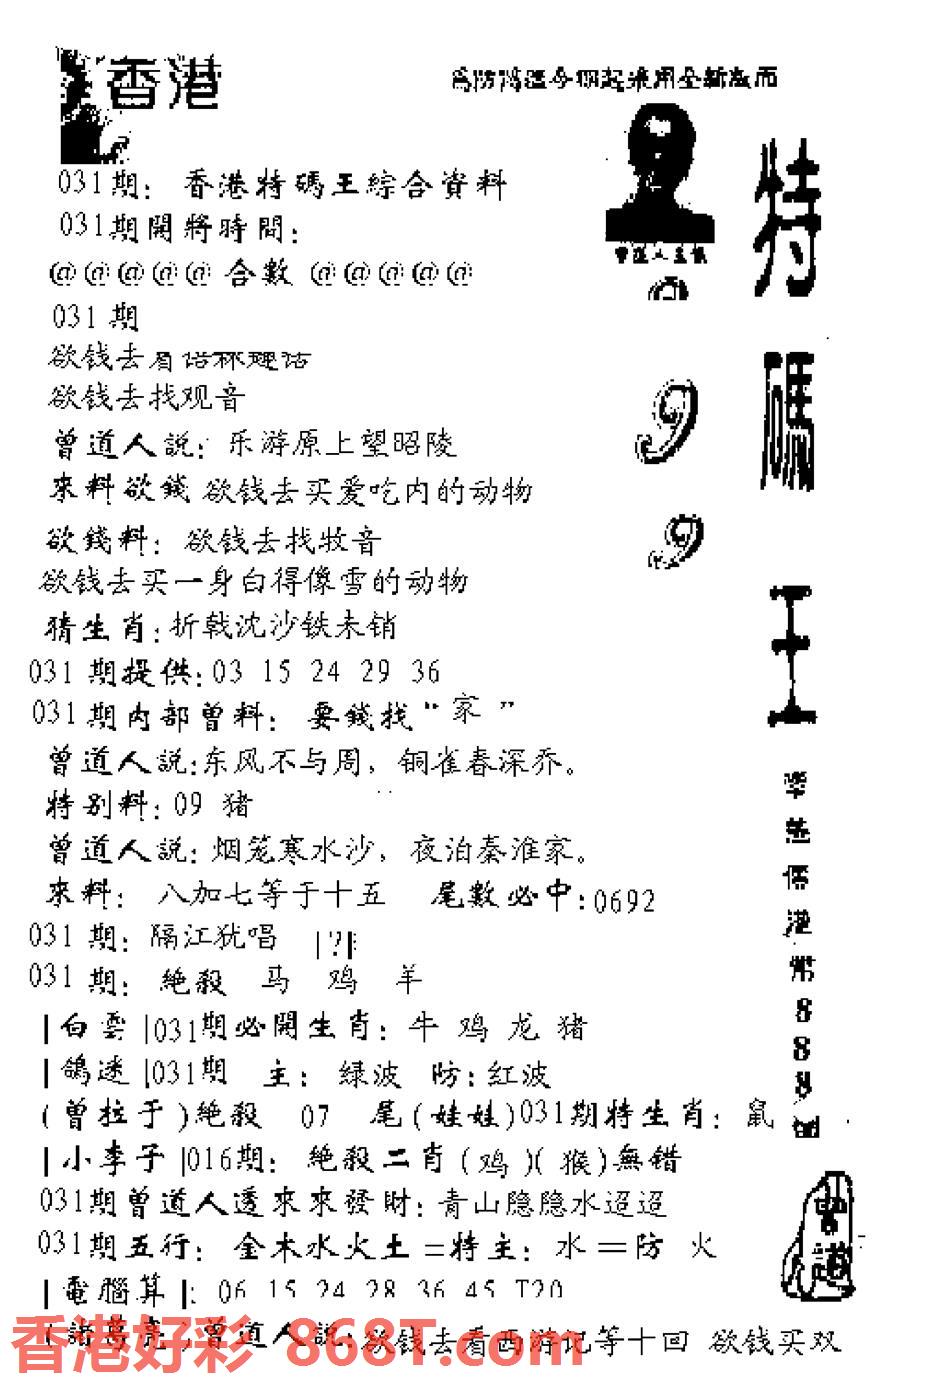 香港
031期：香港特碼王綜合資料
031期開將時間：
@@@@@合數@@@@@
031期
欲钱去
欲钱去找观音
曾道人説：乐游原上望昭陵
來料欲錢欲钱去买爱吃内的动物
欲錢料：欲钱去找牧音
欲钱去买一身白得像雪的动物
猜生肖：折戟沈沙铁未销
031期提供：03 15 24 29 36
031期内部曾料：要錢找“家”
曾道人説：东风不与周，铜雀春深乔。
特别料：09 猪
曾道人説：烟笼寒水沙，夜泊秦淮家。
來料：八加七等于十五 尾數必中：0692
031期：隔江犹唱 |?|
031期：絶殺 马 鸡 羊
|白雲|031期必開生肖：牛 鸡 龙 猪
|鴿迷|031期 主：绿波 防：红波
(曾拉于)絶殺 07 尾(娃娃)031期特生肖：鼠
|小李子|016期：絶殺二肖(鸡)(猴)無错
031期曾道人透來來發財：青山隐隐水迢迢
031期五行：金木水火土=特主：水=防 火
|電腦算|：06 15 24 28 36 45 T20
曾道人説：欲钱去看西游记等十回 欲钱买双
香港好彩 868T.com
特
碼
王
99
港
幣
888
曾道